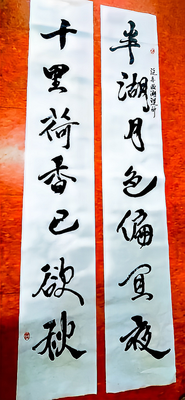 半湖月色偏宜夜
千里荷香已欲秋